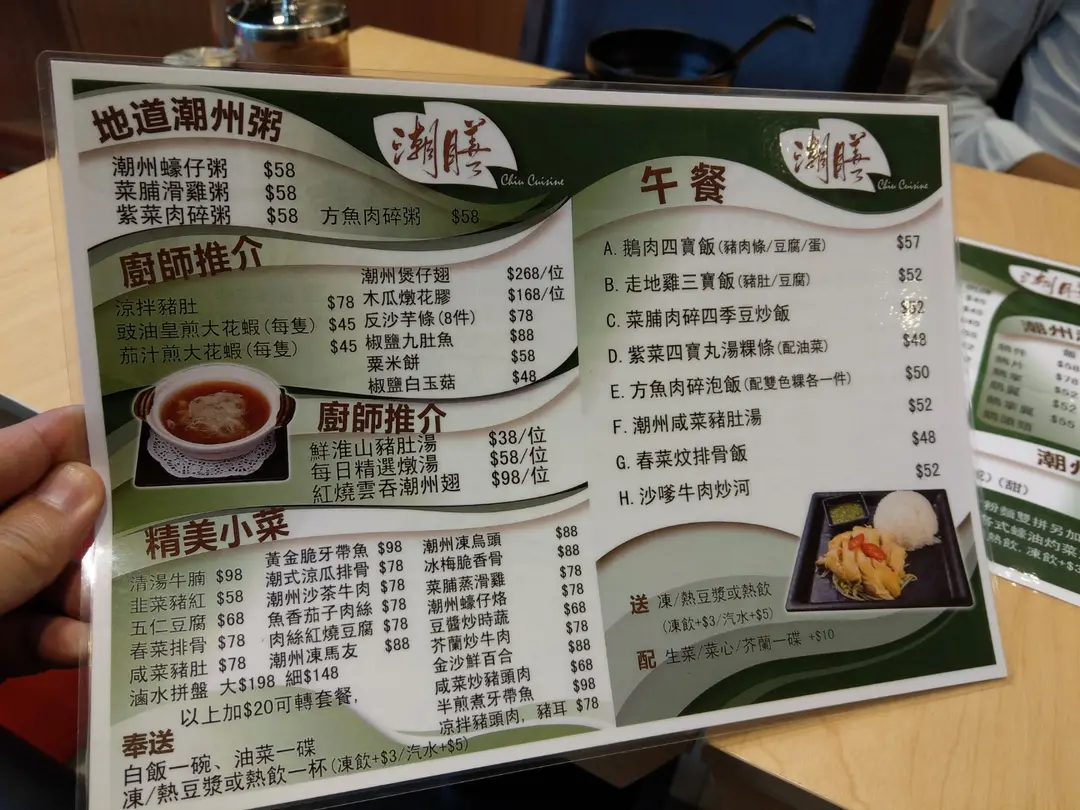 地道潮州粥
潮膳
Chiu Cuisine
潮州蠔仔粥 $58
菜脯滑雞粥 $58
紫菜肉碎粥 $58 方魚肉碎粥 $58
廚師推介
涼拌豬肚 $78
豉油皇煎大花蝦(每隻) $45
茄汁煎大花蝦(每隻) $45
潮州煲仔翅 $268/位
木瓜燉花膠 $168/位
反沙芋條(8件) $78
椒鹽九肚魚 $88
粟米餅 $58
椒鹽白玉菇 $48
廚師推介
鮮淮山豬肚湯 $38/位
每日精選燉湯 $58/位
紅燒雲吞潮州翅 $98/位
精美小菜
清湯牛腩 $98
韭菜豬紅 $58
五仁豆腐 $68
春菜排骨 $78
咸菜豬肚 $78
滷水拼盤 大$198 細$148
黃金脆牙帶魚 $98
潮式涼瓜排骨 $78
潮州沙茶牛肉 $78
魚香茄子肉絲 $78
肉絲紅燒豆腐 $78
潮州凍馬友 $88
潮州凍烏頭 $88
冰梅脆香骨 $88
菜脯蒸滑雞 $78
潮州蠔仔烙 $78
豆醬炒時蔬 $68
芥蘭炒牛肉 $78
金沙鮮百合 $88
咸菜炒豬頭肉 $68
半煎煮牙帶魚 $98
涼拌豬頭肉, 豬耳 $78
以上加$20可轉套餐,
奉送
白飯一碗、油菜一碟
凍/熱豆漿或熱飲一杯(凍飲+$3/汽水+$5)
潮膳
Chiu Cuisine
午餐
A. 鵝肉四寶飯(豬肉條/豆腐/蛋) $57
B. 走地雞三寶飯(豬肚/豆腐) $52
C. 菜脯肉碎四季豆炒飯 $52
D. 紫菜四寶丸湯粿條(配油菜) $48
E. 方魚肉碎泡飯(配雙色粿各一件) $50
F. 潮州咸菜豬肚湯 $52
G. 春菜炆排骨飯 $48
H. 沙嗲牛肉炒河 $52
送 凍/熱豆漿或熱飲
(凍飲+$3/汽水+$5)
配 生菜/菜心/芥蘭一碟 +$10